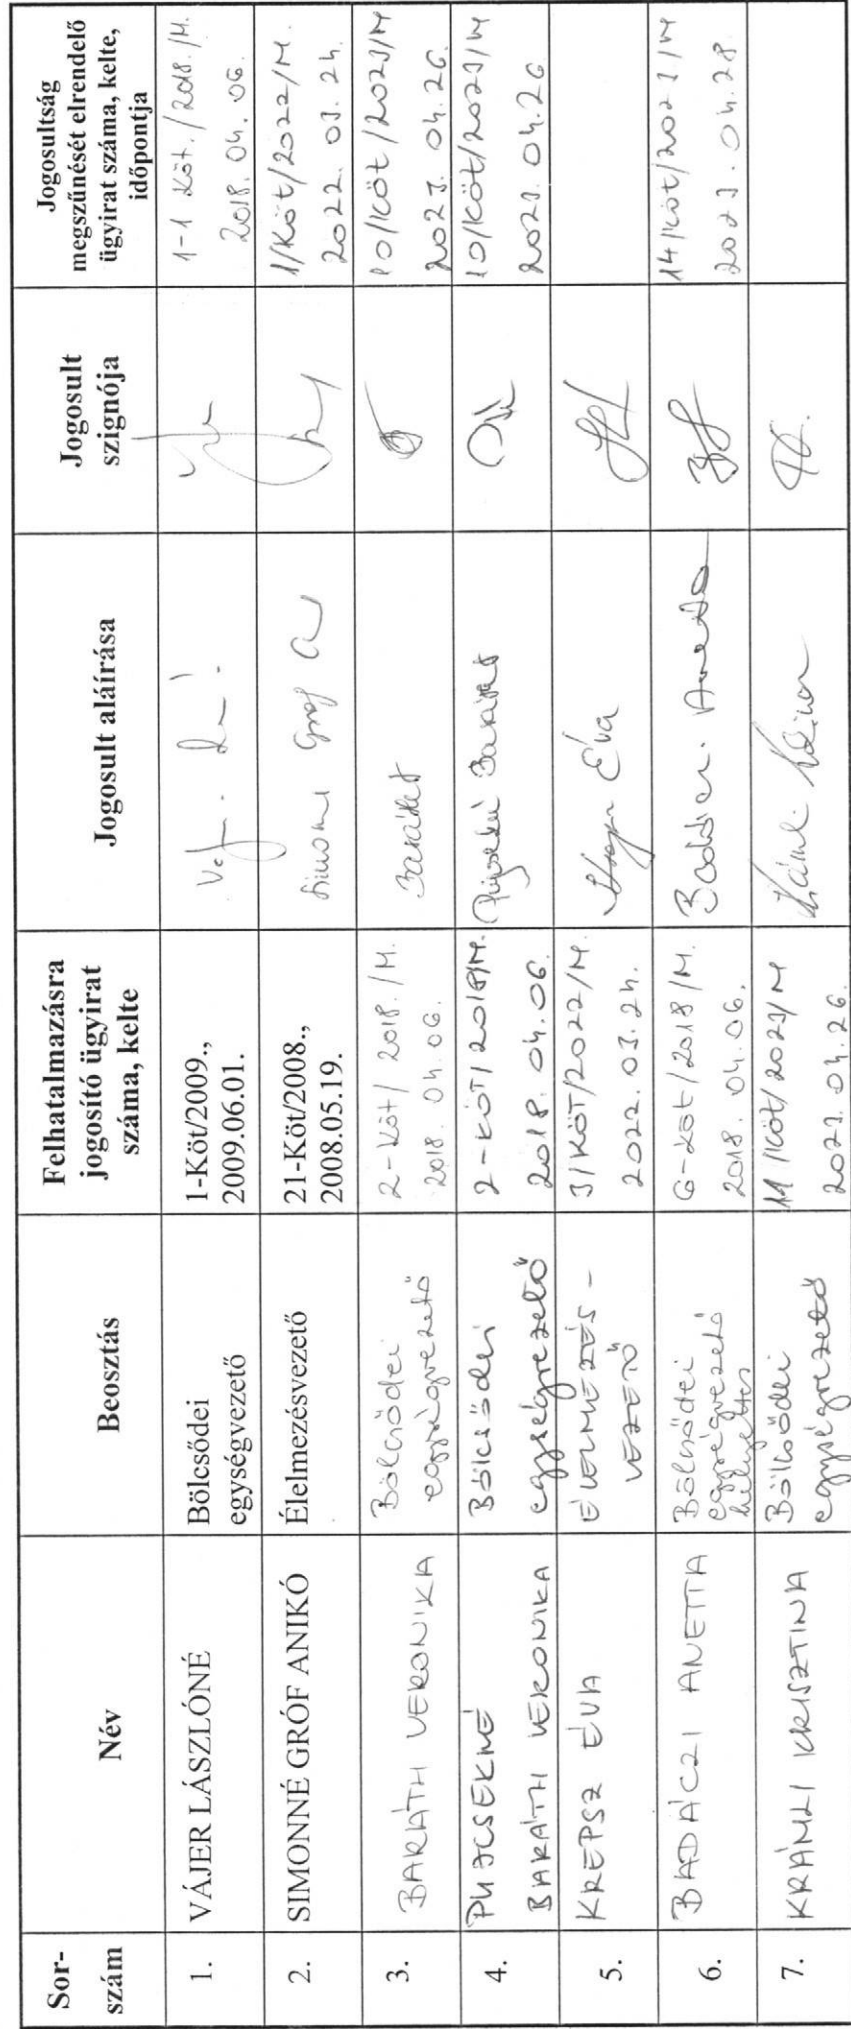 Sor-
szám
Név
Beosztás
Felhatalmazásra
jogosító ügyirat
száma, kelte
Jogosult aláírása
Jogosult
szignója
Jogosultság
megszűnését elrendelő
ügyirat száma, kelte,
időpontja
1.
VÁJER LÁSZLÓNÉ
Bölcsődei
egységvezető
1-Köt/2009.,
2009.06.01.
1-1 Köt./2018./M.
2018. 04. 06.
2.
SIMONNÉ GRÓF ANIKÓ
Élelmezésvezető
21-Köt/2008.,
2008.05.19.
Simonné Gróf A
1/Köt/2022/M.
2022. 03. 24.
3.
BARÁTH VERONIKA
Bölcsődei
egységvezető
2-Köt/2018./M.
2018. 04. 06.
10/Köt/2023/M
2023. 04. 26.
4.
BARÁTH VERONIKA
Bölcsődei
egységvezető
2-KÖT/2018/M.
2018. 04. 06.
10/Köt/2023/M
2023. 04. 26
5.
KREPSZ ÉVA
ÉLELMEZÉS-
VEZETŐ
3/KÖT/2022/M.
2022. 03. 24.
Éva
6.
BADÁCZI ANETTA
Bölcsődei
egységvezető
helyettes
6-Köt/2018/M.
2018. 04. 06.
14/Köt/2023/M
2023. 04. 28.
7.
KRÁMLI KRISZTINA
Bölcsődei
egységvezető
11/Köt/2023/M
2023. 04. 26.